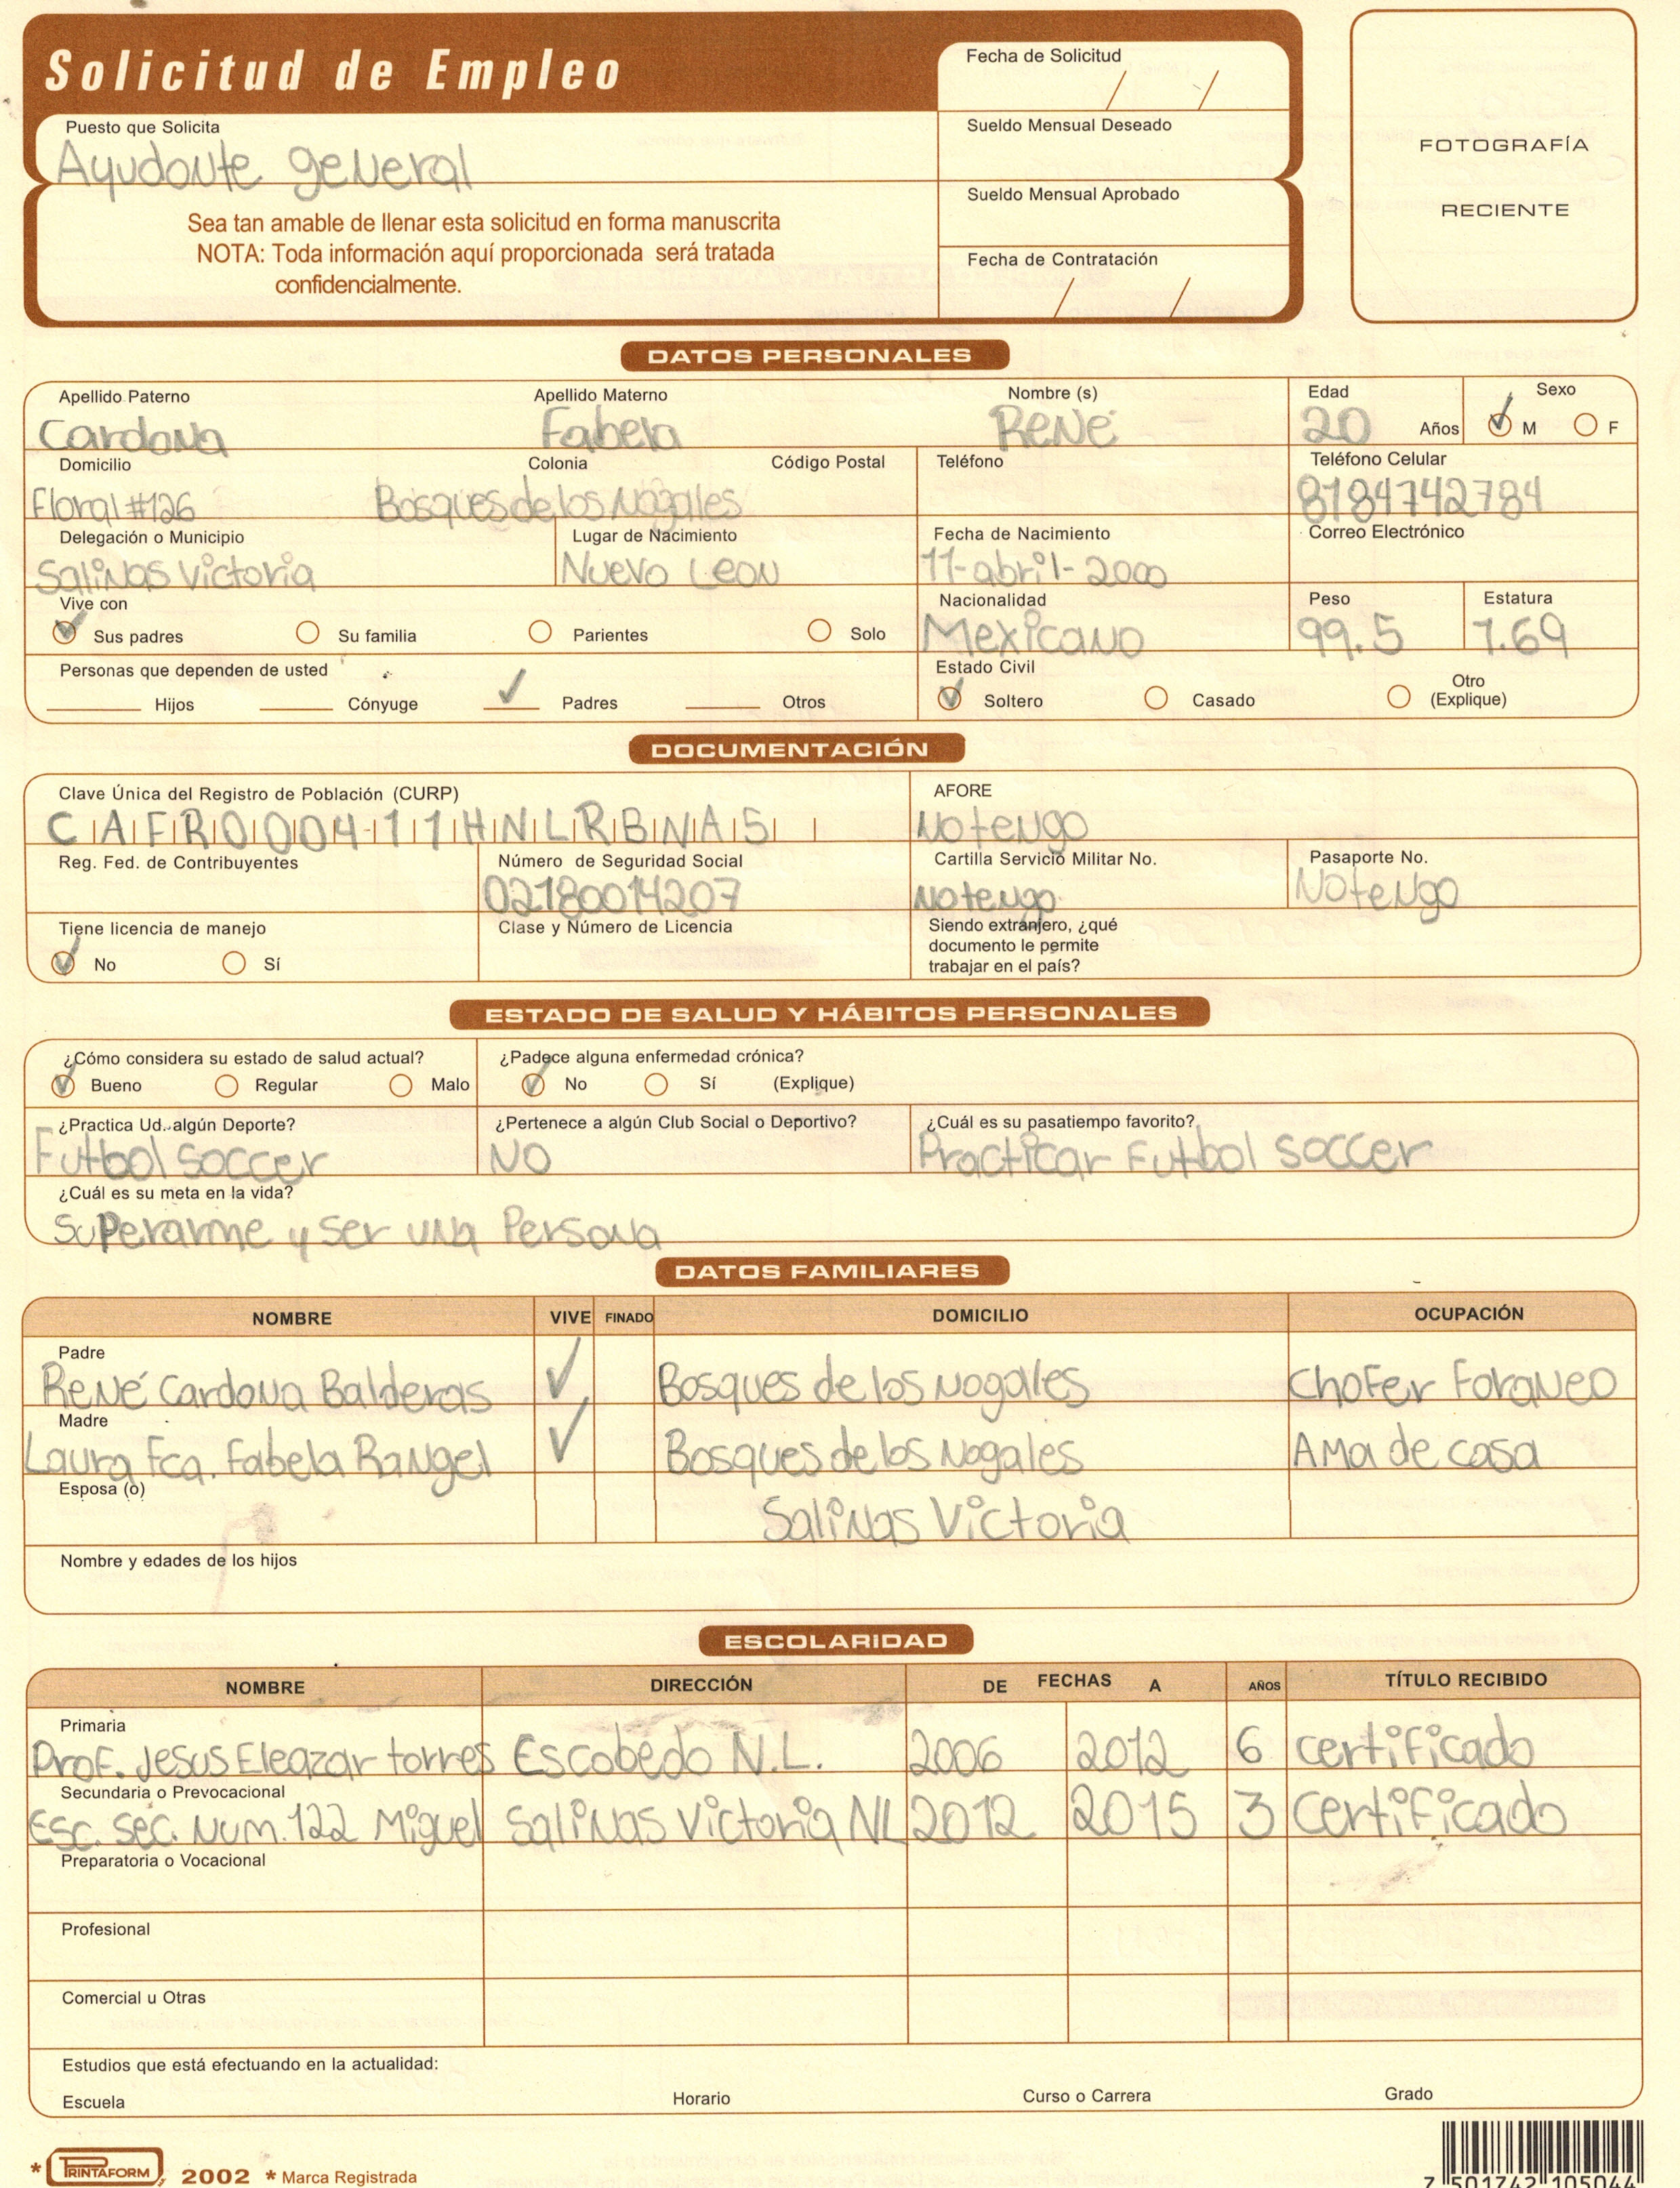 Solicitud de Empleo
Fecha de Solicitud
/ /
Puesto que Solicita
Ayudante general
Sueldo Mensual Deseado
Sueldo Mensual Aprobado
Fecha de Contratación
/ /
Sea tan amable de llenar esta solicitud en forma manuscrita
NOTA: Toda información aquí proporcionada será tratada
confidencialmente.
FOTOGRAFÍA
RECIENTE
DATOS PERSONALES
Apellido Paterno Apellido Materno Nombre (s) Edad Sexo
Cardona Fabela René 20 Años M F
Domicilio Colonia Código Postal Teléfono Teléfono Celular
Floral #126 Bosques de los Nogales 8184742784
Delegación o Municipio Lugar de Nacimiento Fecha de Nacimiento Correo Electrónico
Salinas Victoria Nuevo Leon 11-abril-2000
Vive con Nacionalidad Peso Estatura
Sus padres Su familia Parientes Solo Mexicano 99.5 1.69
Personas que dependen de usted Estado Civil
Hijos Cónyuge Padres Otros Soltero Casado Otro (Explique)
DOCUMENTACIÓN
Clave Única del Registro de Población (CURP) AFORE
CAFR000411HNLRBNA5 No tengo
Reg. Fed. de Contribuyentes Número de Seguridad Social Cartilla Servicio Militar No. Pasaporte No.
02180014207 No tengo No tengo
Tiene licencia de manejo Clase y Número de Licencia Siendo extranjero, ¿qué
documento le permite
No Sí trabajar en el país?
ESTADO DE SALUD Y HÁBITOS PERSONALES
¿Cómo considera su estado de salud actual? ¿Padece alguna enfermedad crónica?
Bueno Regular Malo No Sí (Explique)
¿Practica Ud. algún Deporte? ¿Pertenece a algún Club Social o Deportivo? ¿Cuál es su pasatiempo favorito?
Futbol soccer NO Practicar Futbol soccer
¿Cuál es su meta en la vida?
Superarme y ser una Persona
DATOS FAMILIARES
NOMBRE VIVE FINADO DOMICILIO OCUPACIÓN
Padre
René Cardona Balderas Bosques de los Nogales Chofer Foraneo
Madre
Laura Fca. Fabela Rangel Bosques de los Nogales Ama de casa
Esposa (o)
Salinas Victoria
Nombre y edades de los hijos
ESCOLARIDAD
NOMBRE DIRECCIÓN DE FECHAS A AÑOS TÍTULO RECIBIDO
Primaria
Prof. Jesus Eleazar torres Escobedo N.L. 2006 2012 6 certificado
Secundaria o Prevocacional
Esc. Sec. Num. 122 Miguel Salinas Victoria NL 2012 2015 3 certificado
Preparatoria o Vocacional
Profesional
Comercial u Otras
Estudios que está efectuando en la actualidad:
Escuela Horario Curso o Carrera Grado
* PRINTAFORM 2002 * Marca Registrada
7 501742 105044